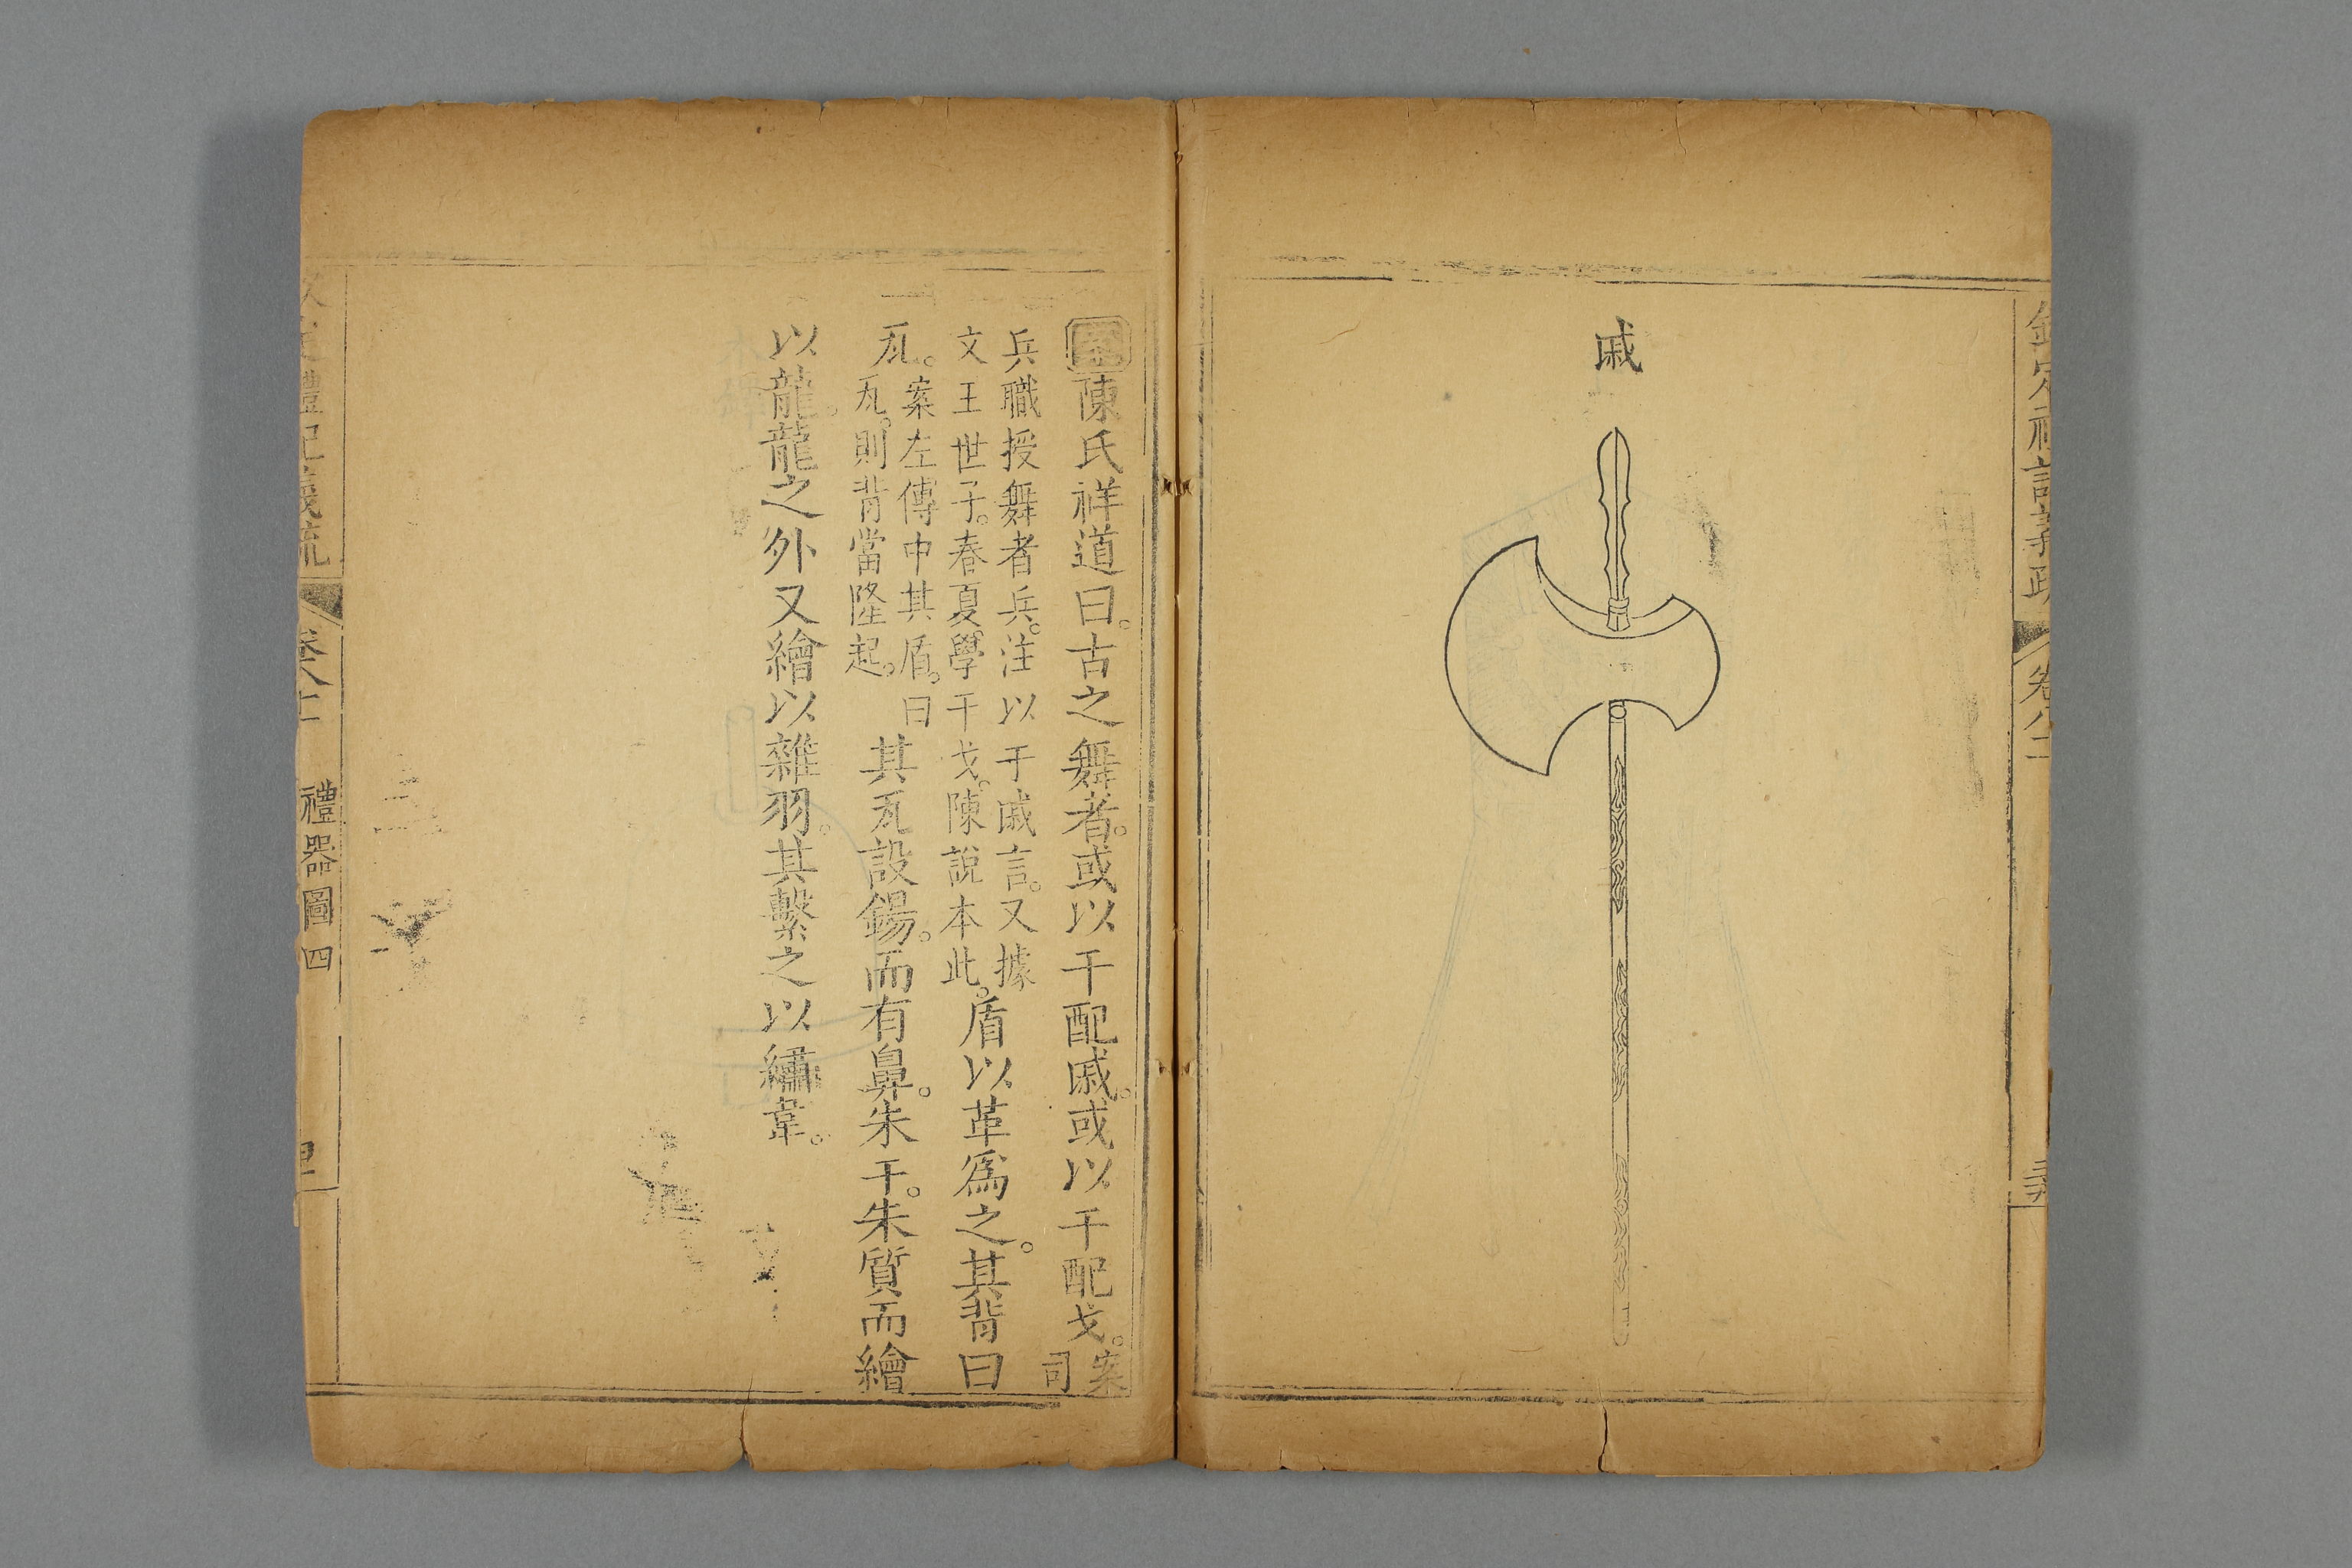 戚
陳氏祥道曰。古之舞者。或以干配戚。或以干配戈。案司
兵職授舞者兵。注以于戚言。又據
文王世子。春夏學干戈。陳說本此。
盾以革爲之。其背曰
瓦。案左傳中其盾。曰
瓦。則背當隆起。
其瓦設鍚。而有鼻。朱干。朱質而繪
以龍。龍之外又繪以雜羽。其繫之以繡韋。
禮記義疏
禮器圖四